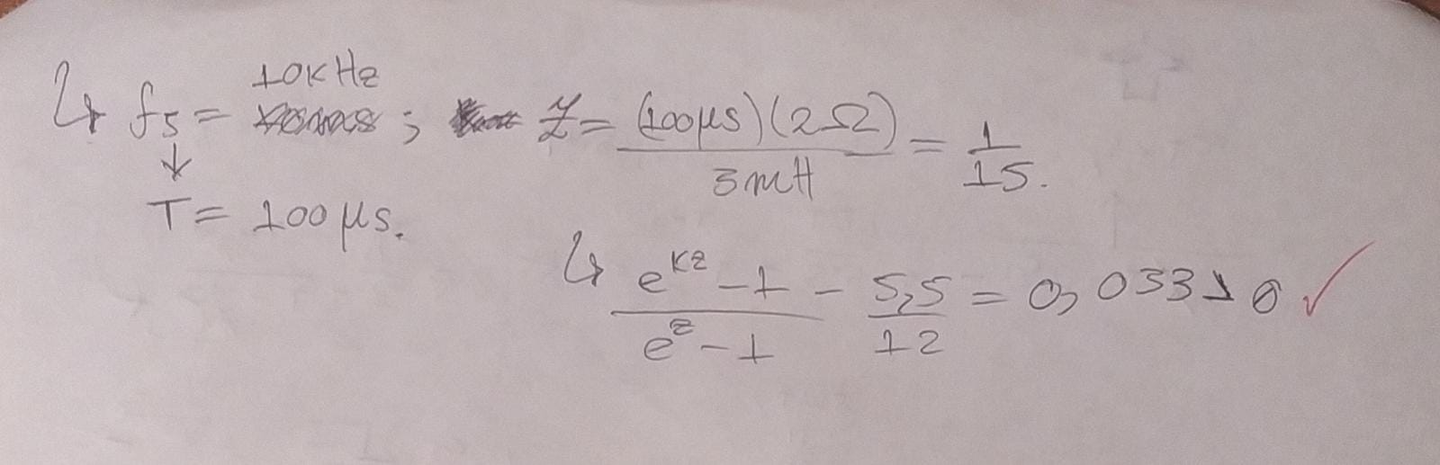 ↳ fs = 10KHz ; z = (100μs)(2Ω) / 3mH = 1/15.
↓
T = 100μs.
↳ (e^{kz} - 1) / (e^z - 1) - 5,5/12 = 0,03310 ✓